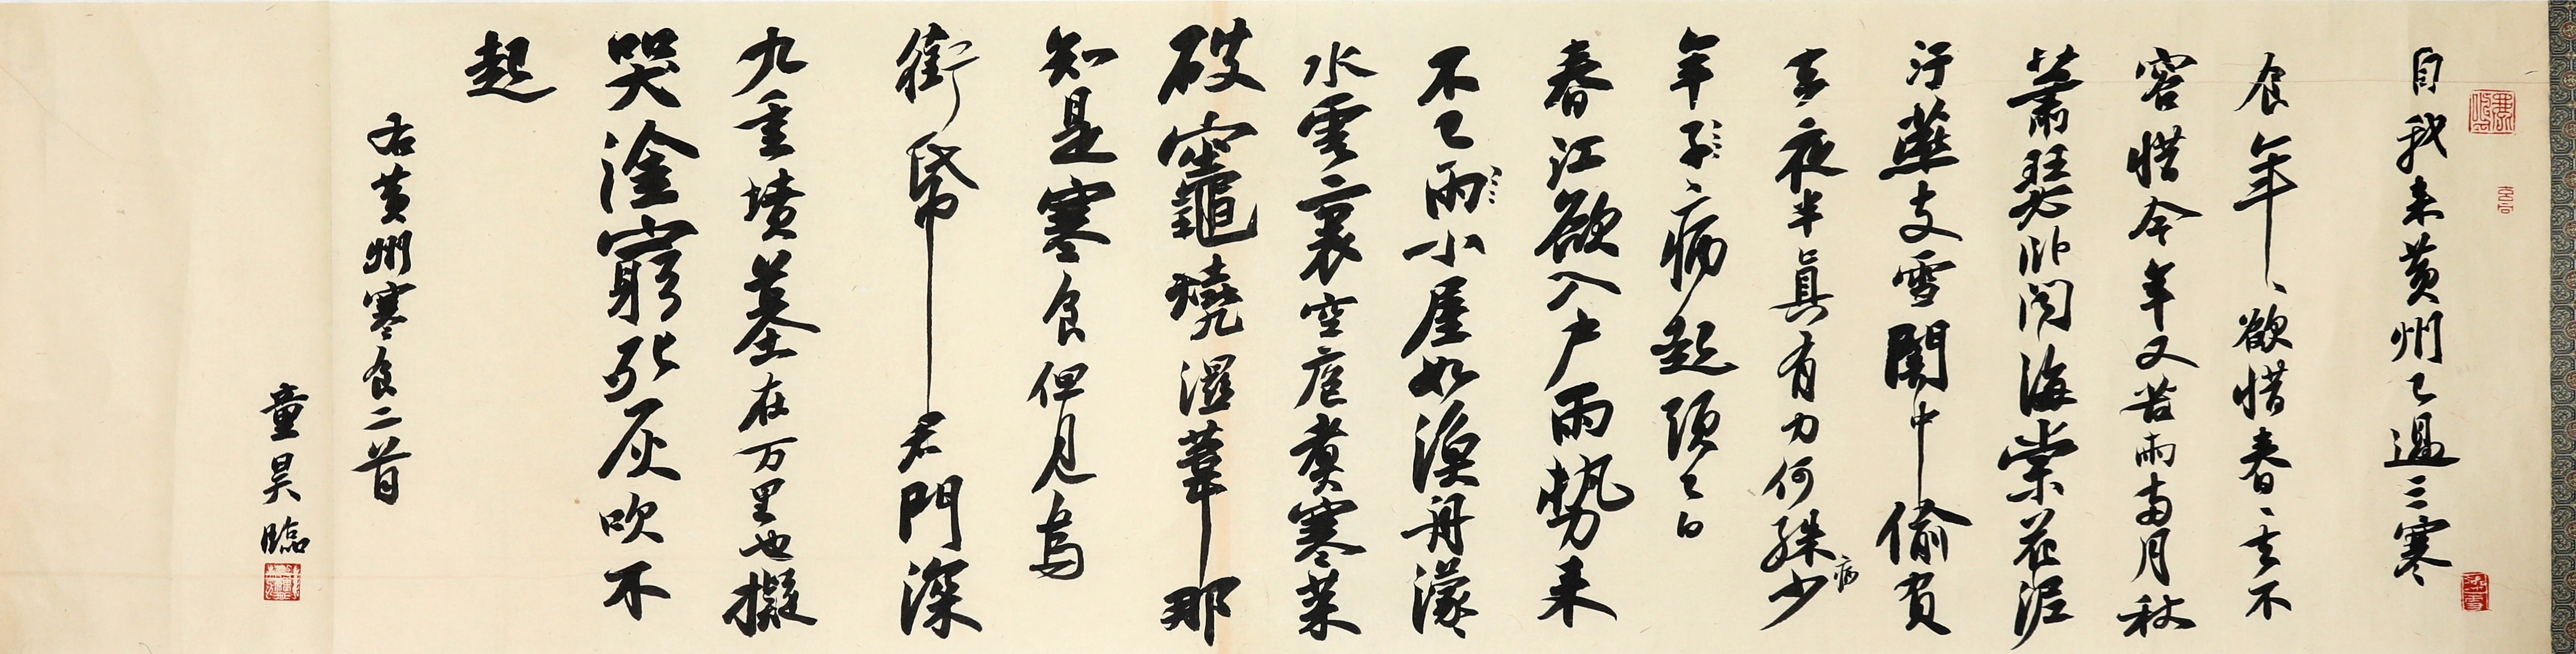 自我來黃州已過三寒
食年〻欲惜春〻去不
容惜今年又苦雨兩月秋
蕭瑟臥聞海棠花泥
汙燕支雪闇中偷負
去夜半真有力何殊少
病
年子〻病起頭已白
春江欲入戶雨勢来
不已雨小屋如漁舟濛
水雲裏空庖煮寒菜
破竈燒濕葦那
知是寒食但見烏
銜帋君門深
九重墳墓在万里也擬
哭塗窮死灰吹不
起
右黃州寒食二首
童昊臨